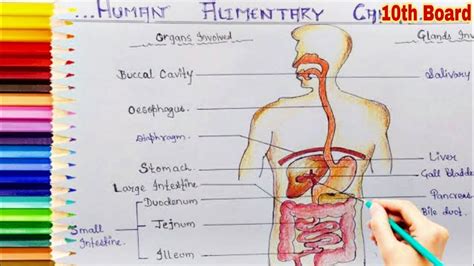 ...Human Alimentary Ca
10th Board
Organs Involved
Glands Inv
Buccal Cavity
Salivary
Oesophagus
Diaphragm
Stomach
Liver
Gall bladder
Large Intestine
Pancreas
Bile duct
Small Intestine
Duodenum
Jejnum
Illeum